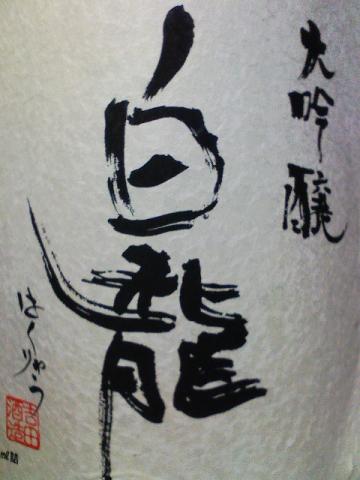 大吟醸
白龍
はくりゅう
吉田酒造
ml詰